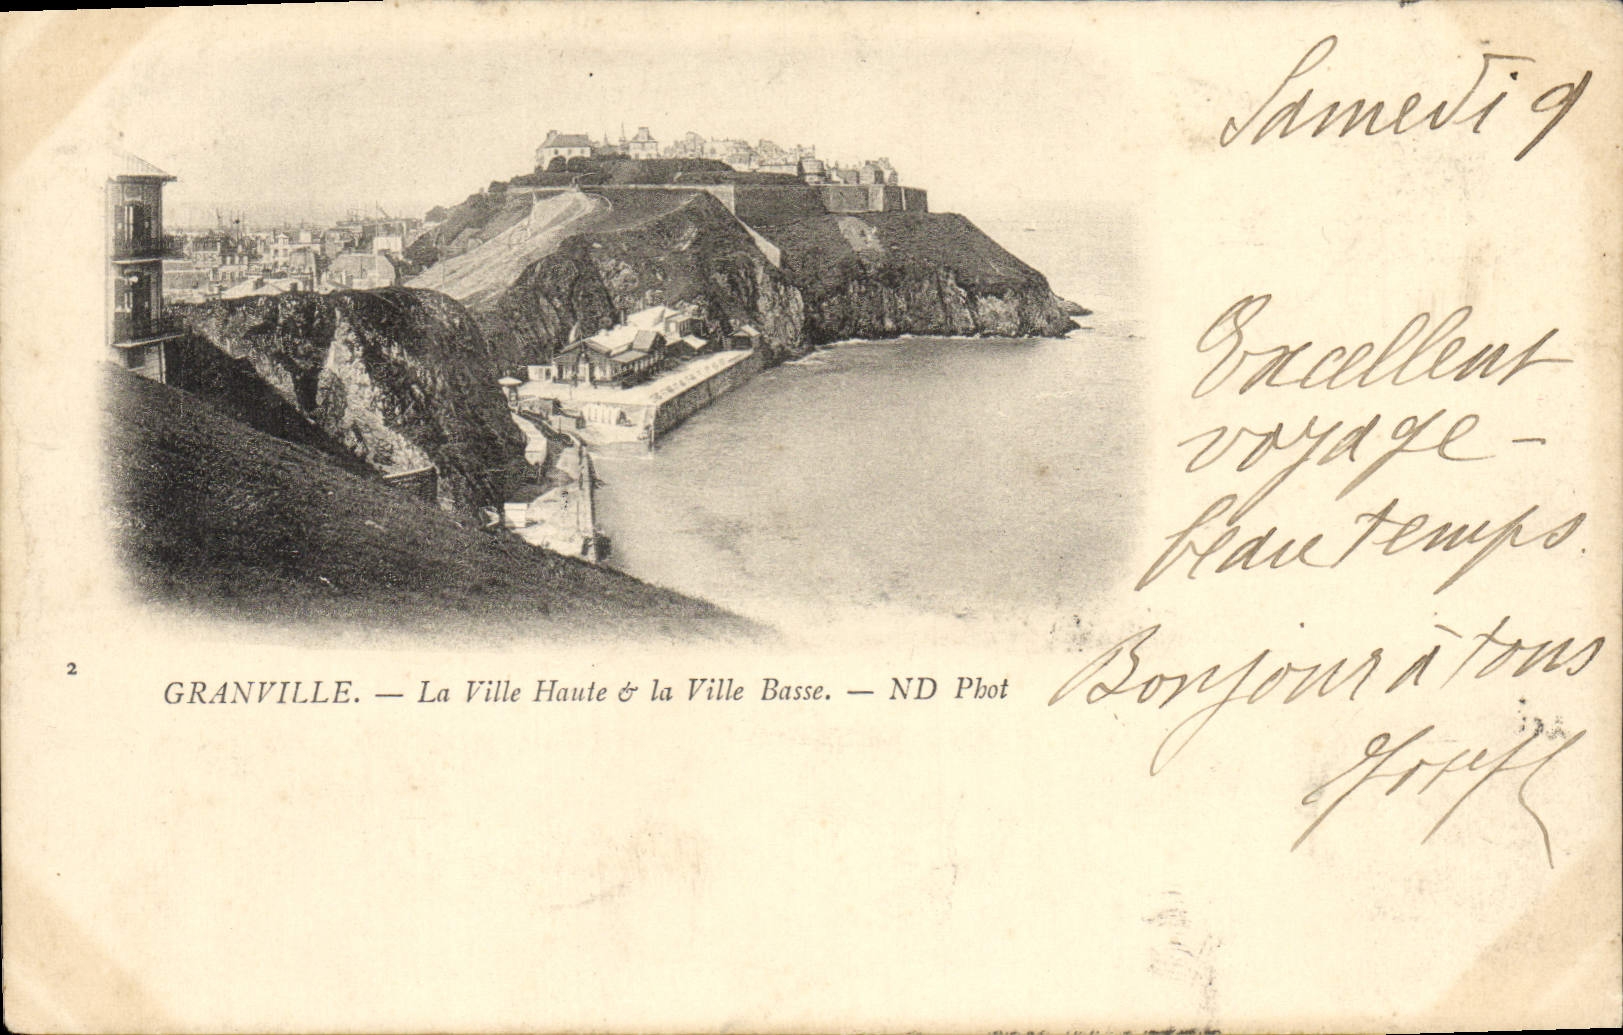 Samedi 9
Excellent
voyage –
beau temps.
Bonjour à tous
Joseph
2
GRANVILLE. — La Ville Haute & la Ville Basse. — ND Phot